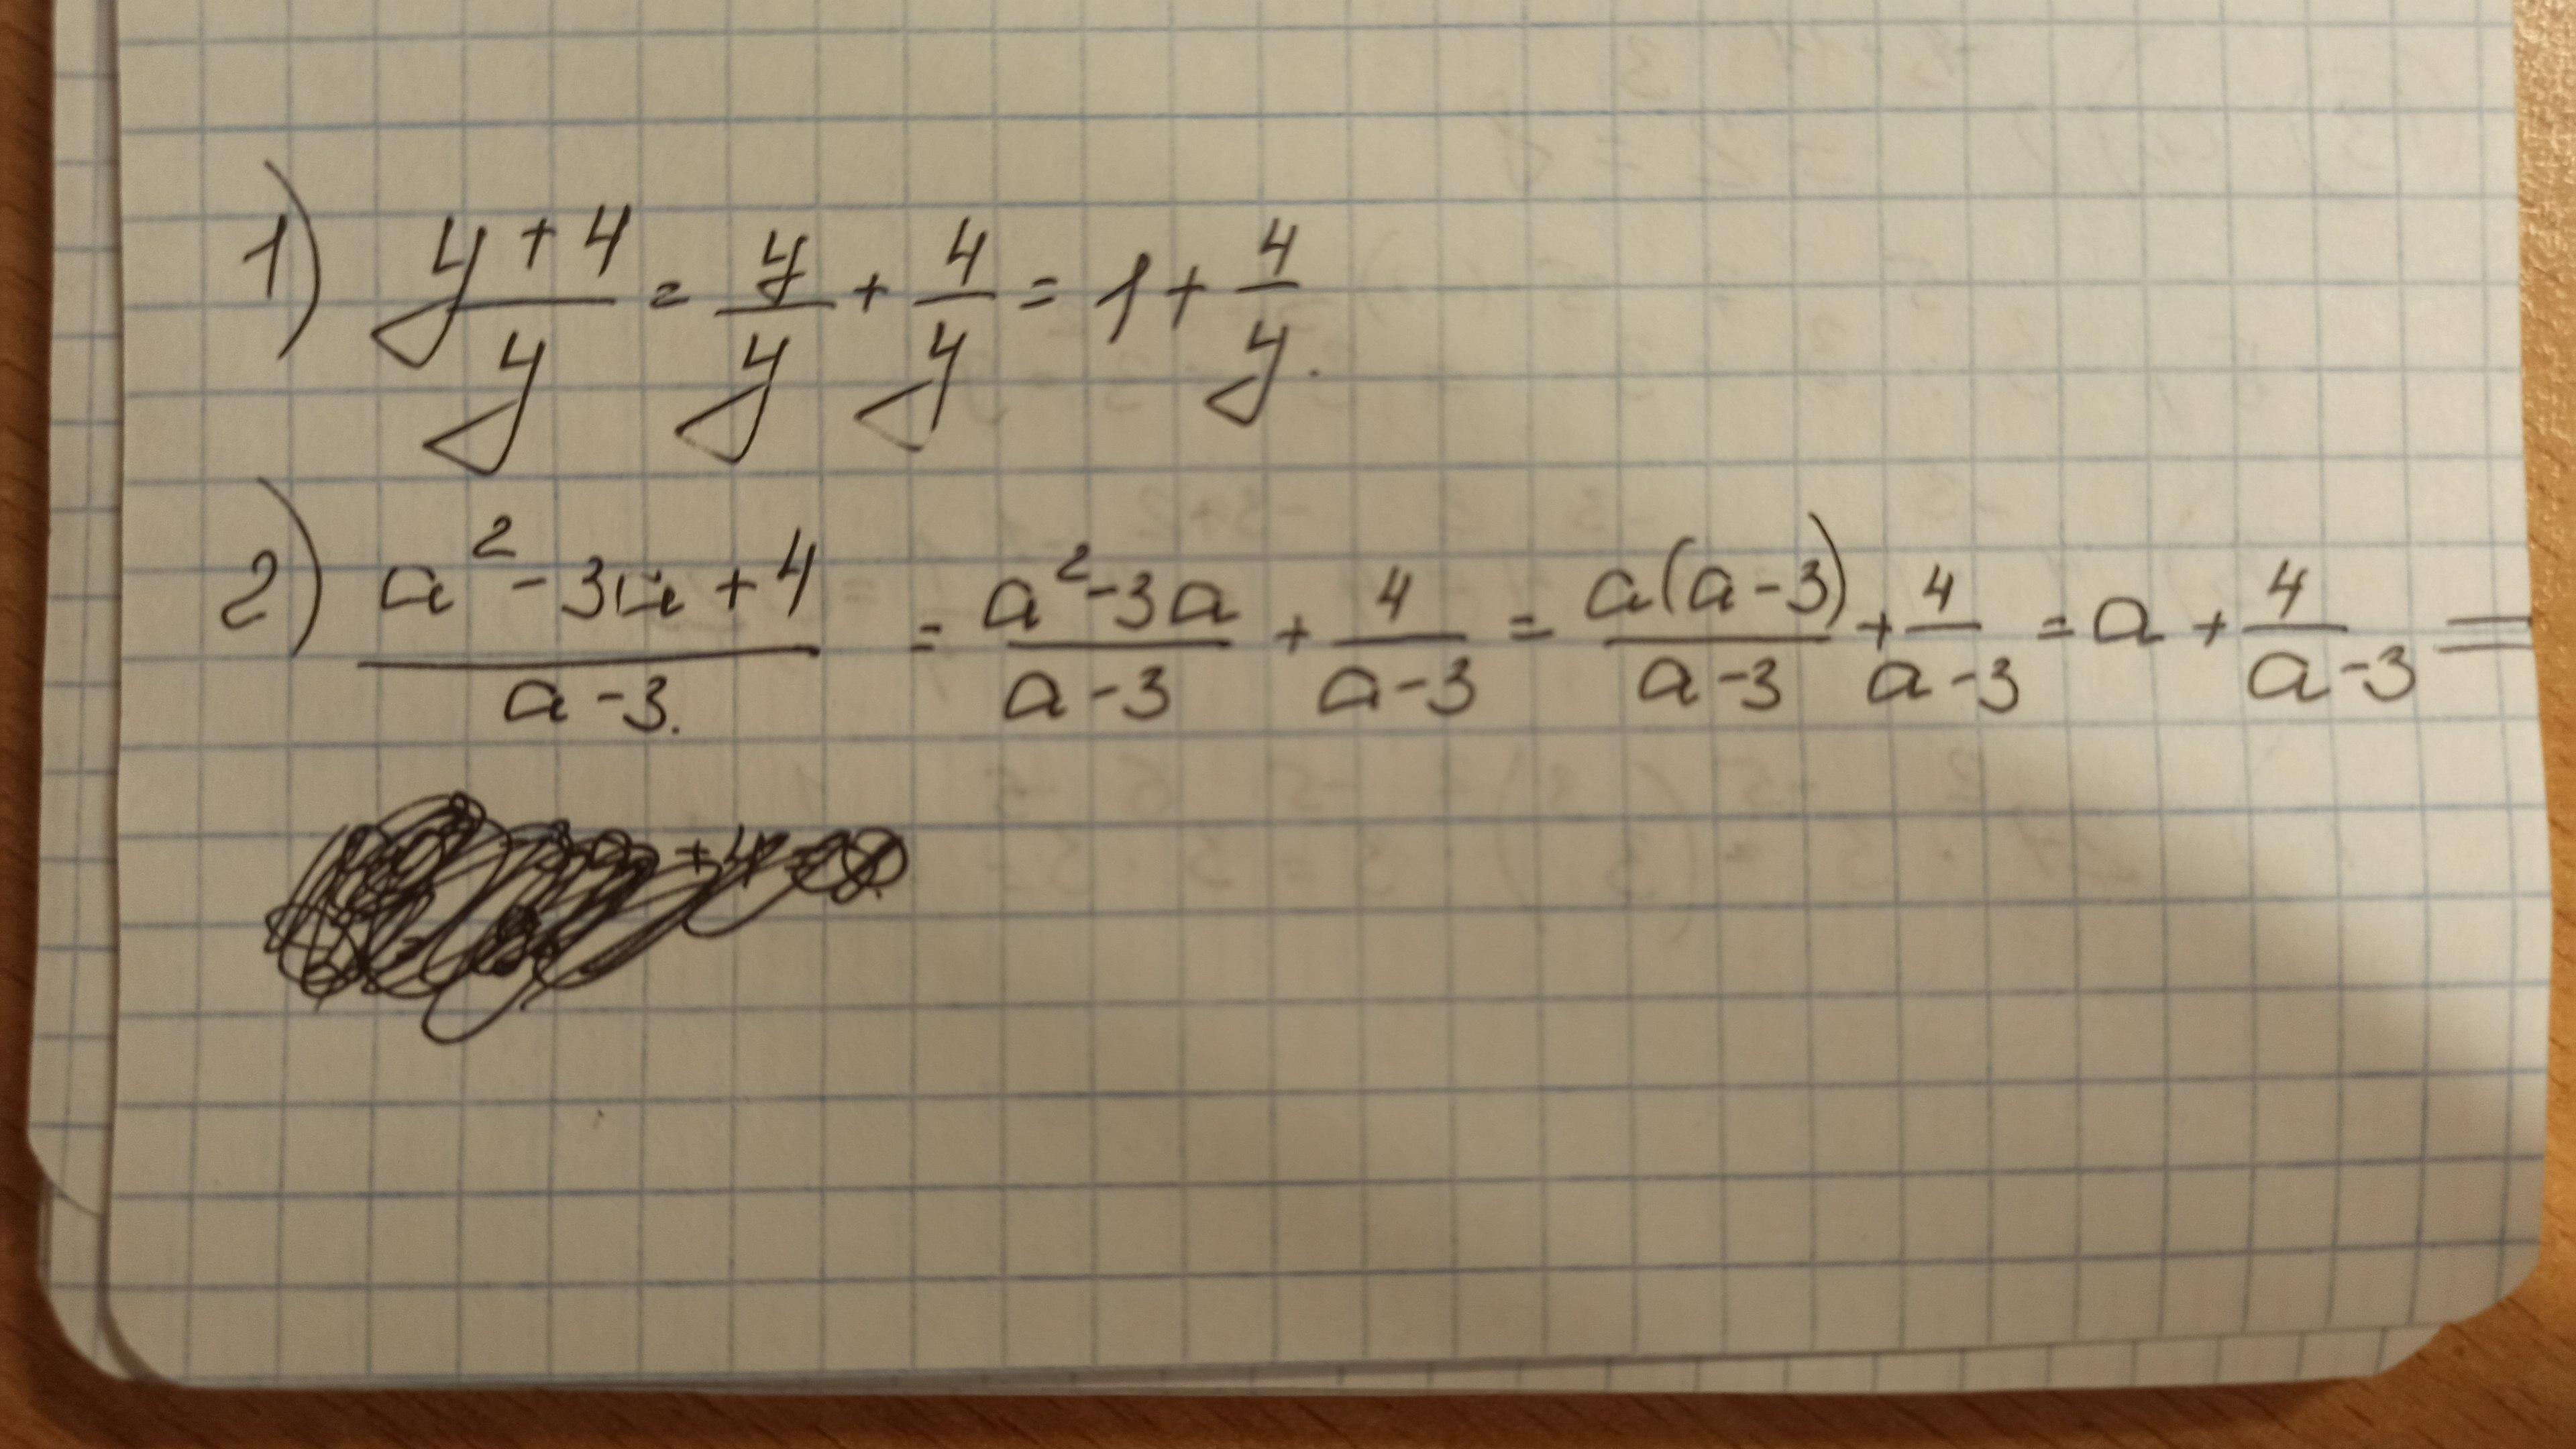 1) (y + 4)/y = y/y + 4/y = 1 + 4/y.
2) (a² - 3a + 4)/(a - 3). = (a² - 3a)/(a - 3) + 4/(a - 3) = a(a - 3)/(a - 3) + 4/(a - 3) = a + 4/(a - 3) =
+ 4